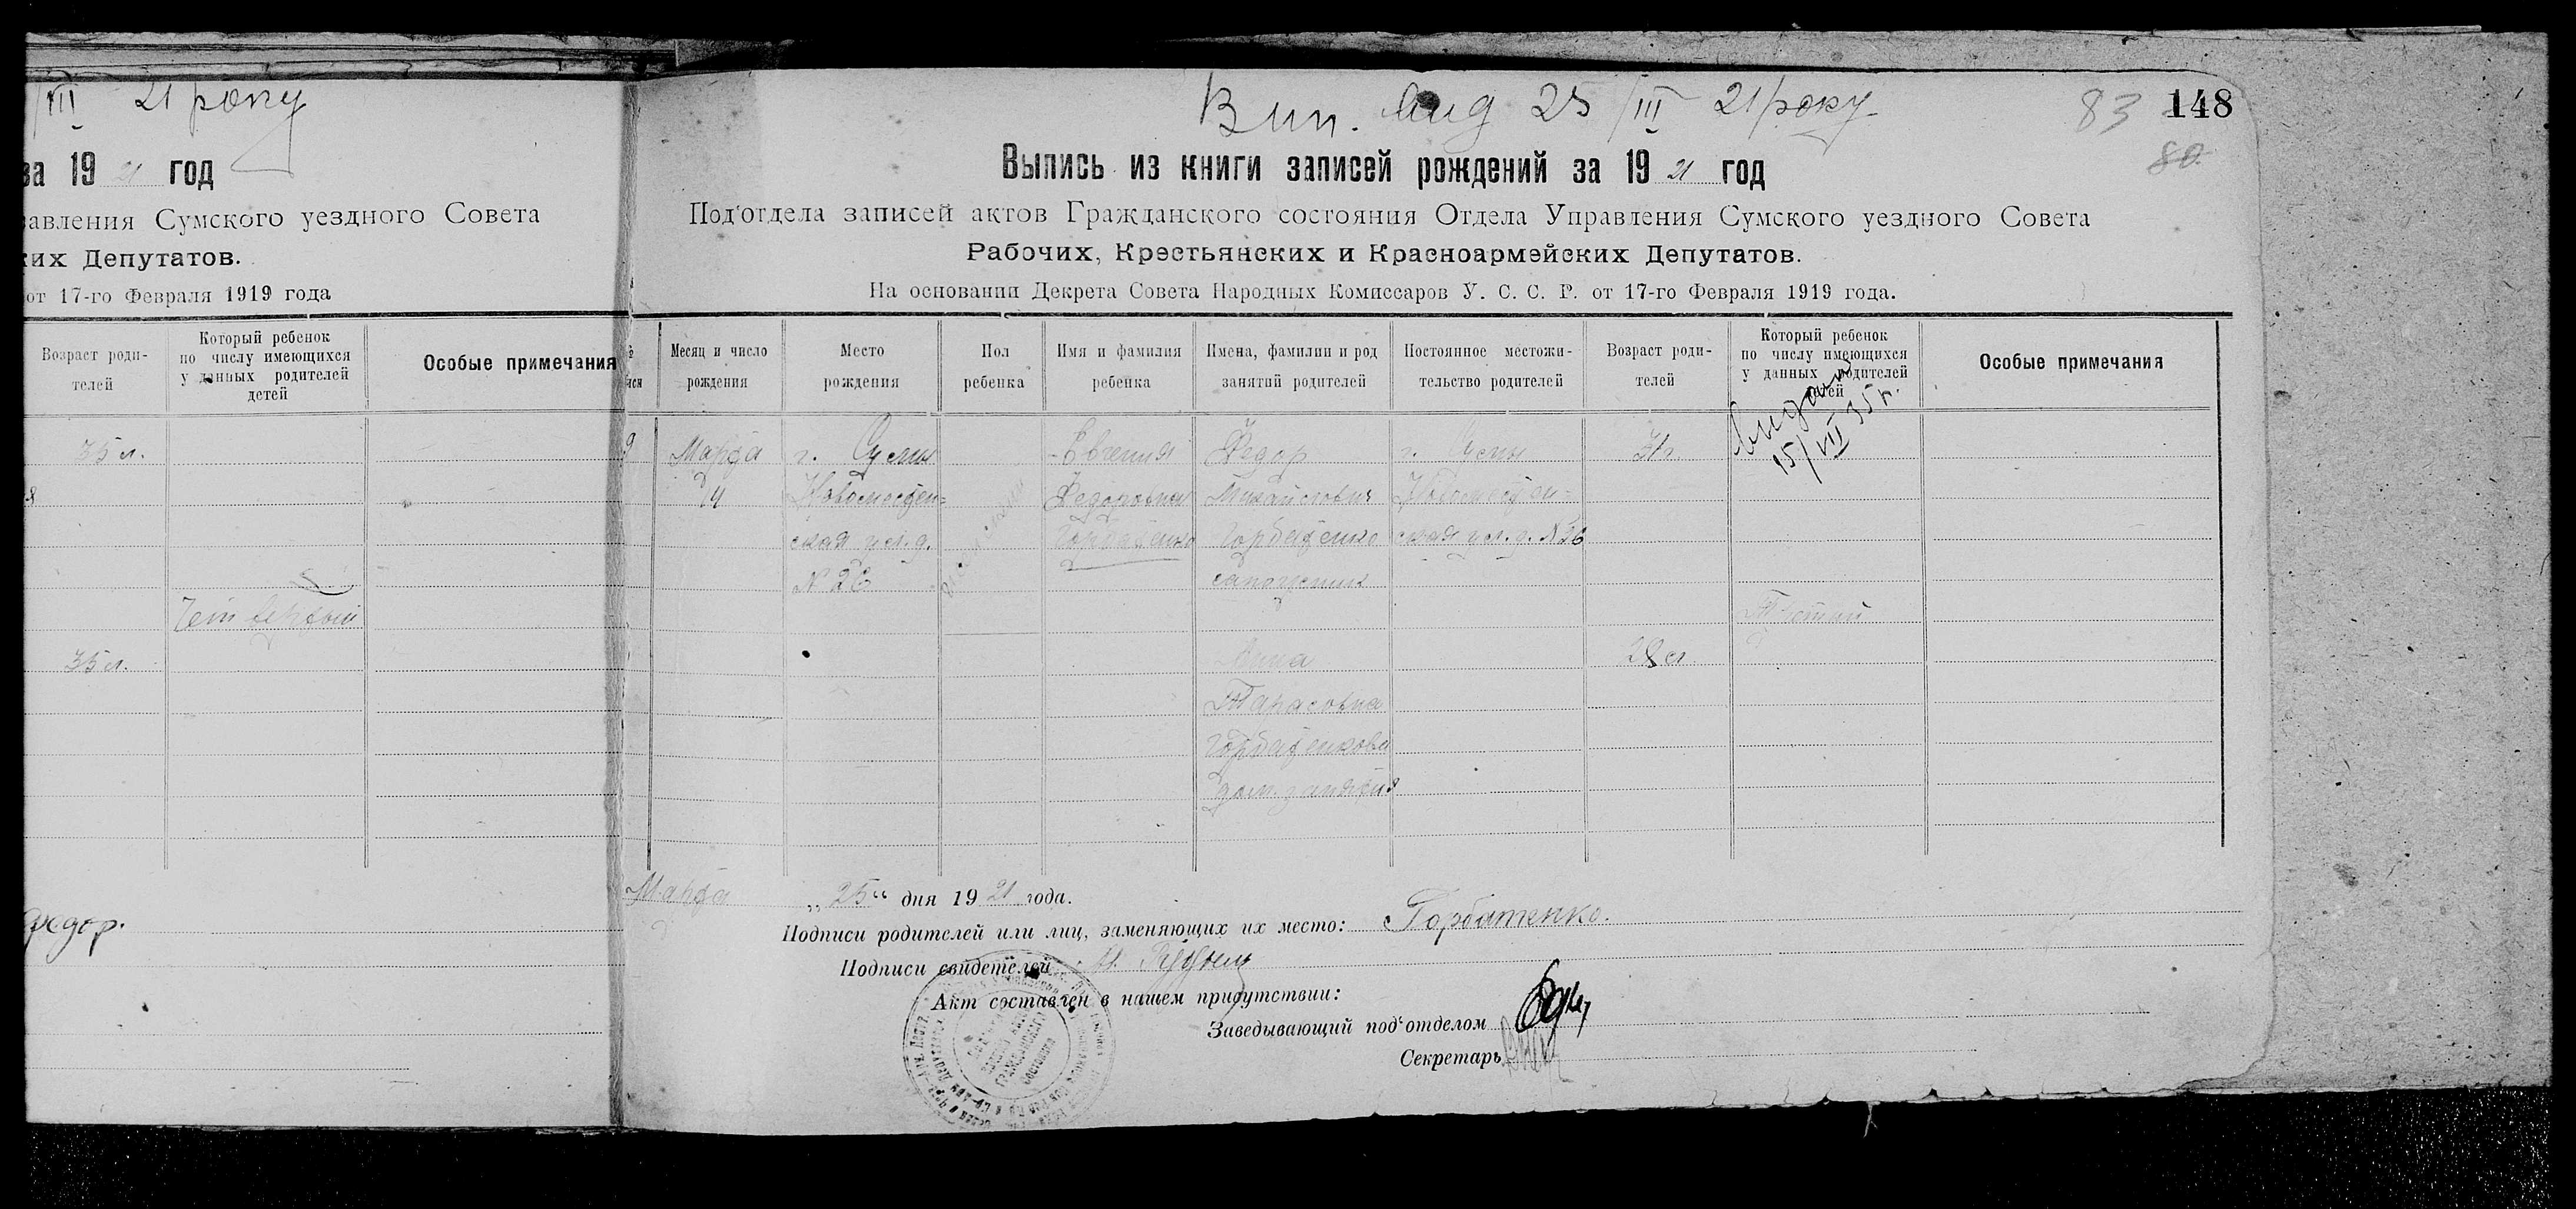 /VII 21 року
за 19 21 год
равления Сумского уездного Совета
ких Депутатов.
от 17-го Февраля 1919 года
Возраст роди-
телей
Который ребенок
по числу имеющихся
у данных родителей
детей
Особые примечания
35 л.
Четвертый
35 л.
Федор.
Вип. 25/III 21 року
83 148
80
Выпись из книги записей рождений за 19 21 год
Под‘отдела записей актов Гражданского состояния Отдела Управления Сумского уездного Совета
Рабочих, Крестьянских и Красноармейских Депутатов.
На основании Декрета Совета Народных Комиссаров У. С. С. Р. от 17-го Февраля 1919 года.
Месяц и число
рождения
Место
рождения
Пол
ребенка
Имя и фамилия
ребенка
Имена, фамилии и род
занятий родителей
Постоянное местожи-
тельство родителей
Возраст роди-
телей
Который ребенок
по числу имеющихся
у данных родителей
детей
Особые примечания
9
Марта
14
г. Сумы
Новоместен=
ская ул. д.
N 26
Евгения
Федоровна
Горбатенко
Федор
Михайлович
Горбатенко
сапожник
Анна
Тарасовна
Горбатенкова
дом. занятия
г. Сумы
Новоместен-
ская ул. д. N 26
31 г.
28 л.
15/VII 35 г.
Третий
Марта „25“ дня 19 21 года.
Подписи родителей или лиц, заменяющих их место: Горбатенко.
Подписи свидетелей
Акт составлен в нашем присутствии:
Заведывающий под‘отделом
Секретарь